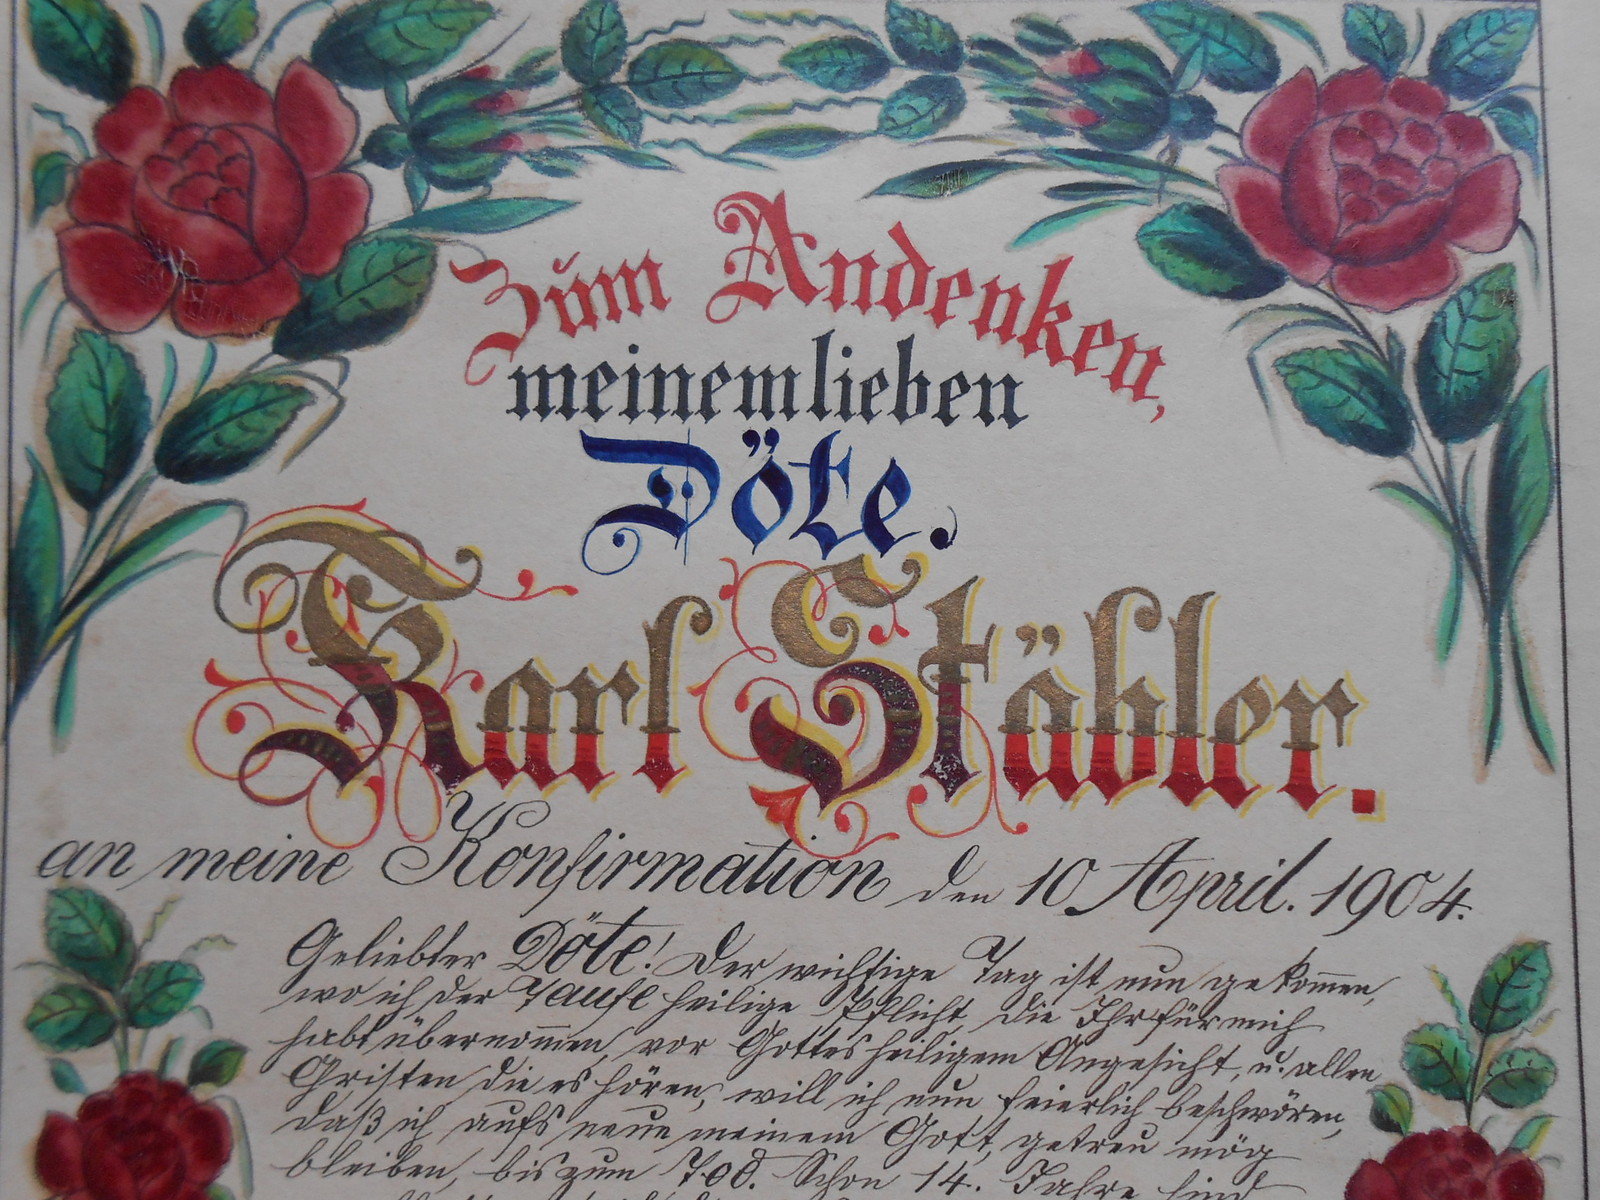 Zum Andenken,
meinem lieben
Döte.
Karl Stäbler.
an meine Konfirmation den 10 April. 1904.
Geliebter Döte! Der wichtige Tag ist nun gekom̅en,
wo ich der Taufe heilige Pflicht, die Ihr für mich
habt übernom̅en, vor Gottes heiligem Angesicht, u. allen
Cristen die es hören, will ich nun feierlich beschwören,
daß ich aufs neue meinem Gott, getreu mög
bleiben, bis zum Tod. Schon 14. Jahre sind